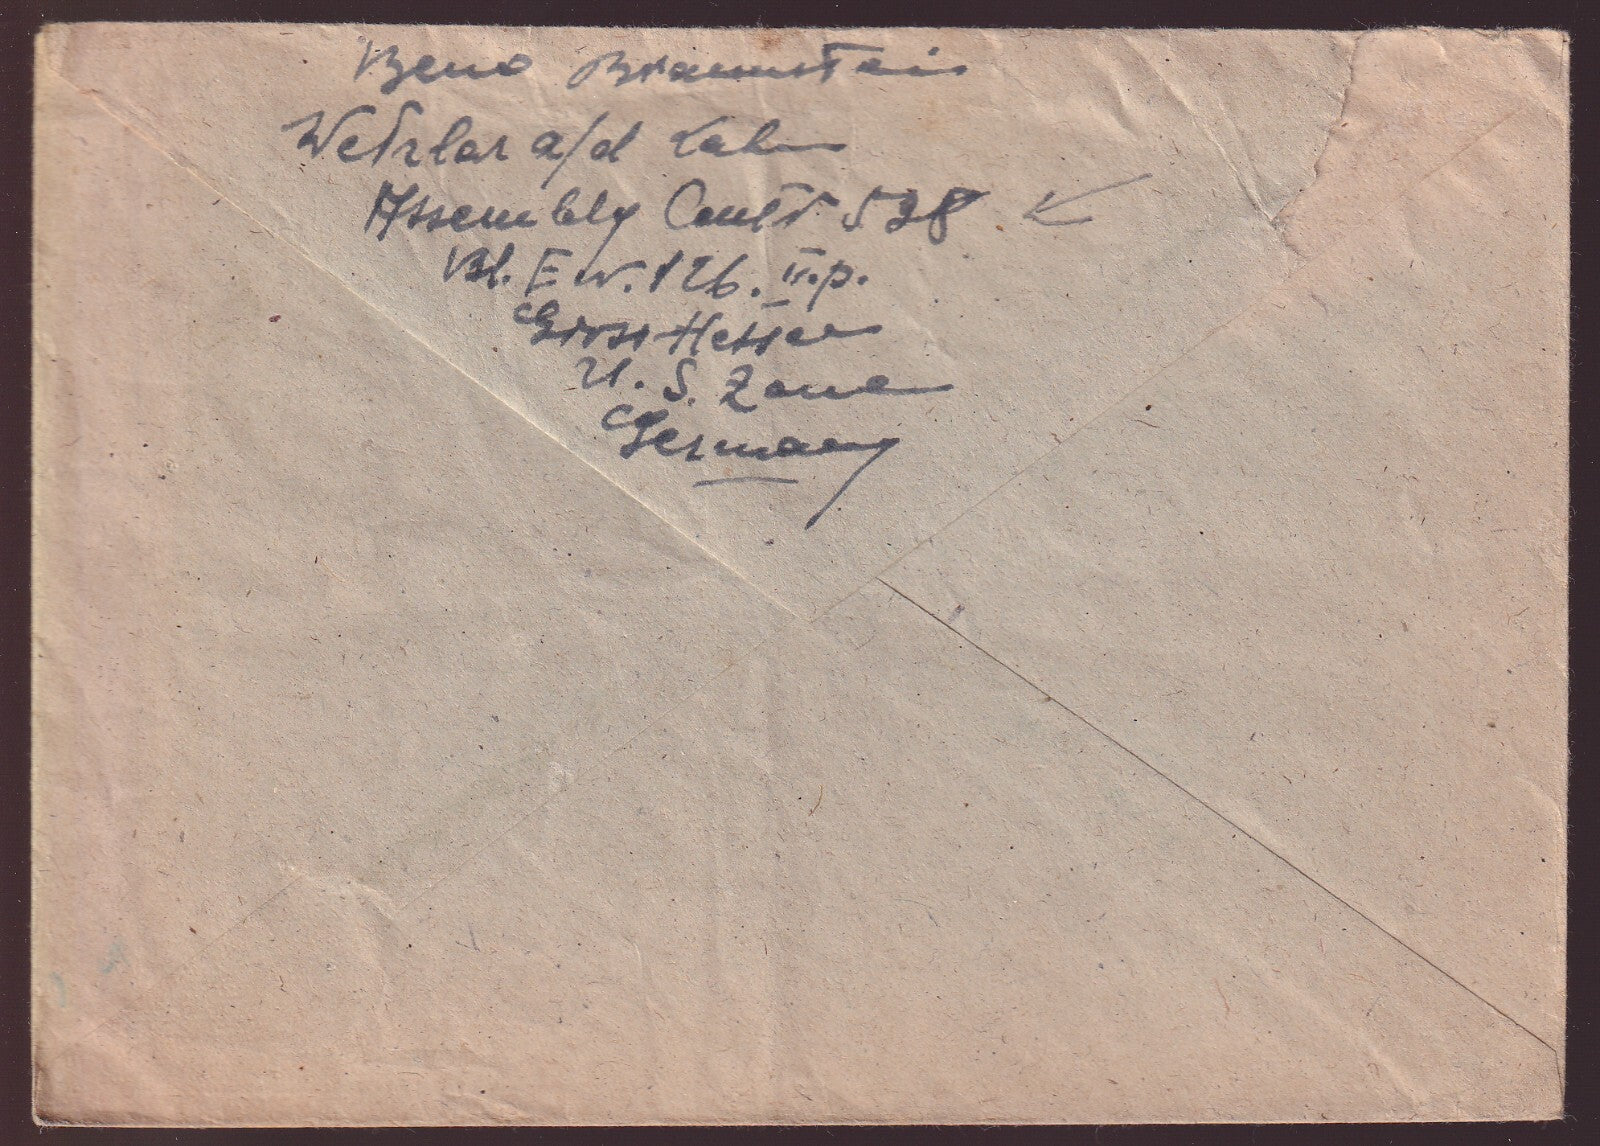 Beno Braunstein
Wetzlar a/d Lahn
Assembly Centr 528
Bl. E w. 126. II.p.
Gross-Hessen
U. S. Zone
Germany